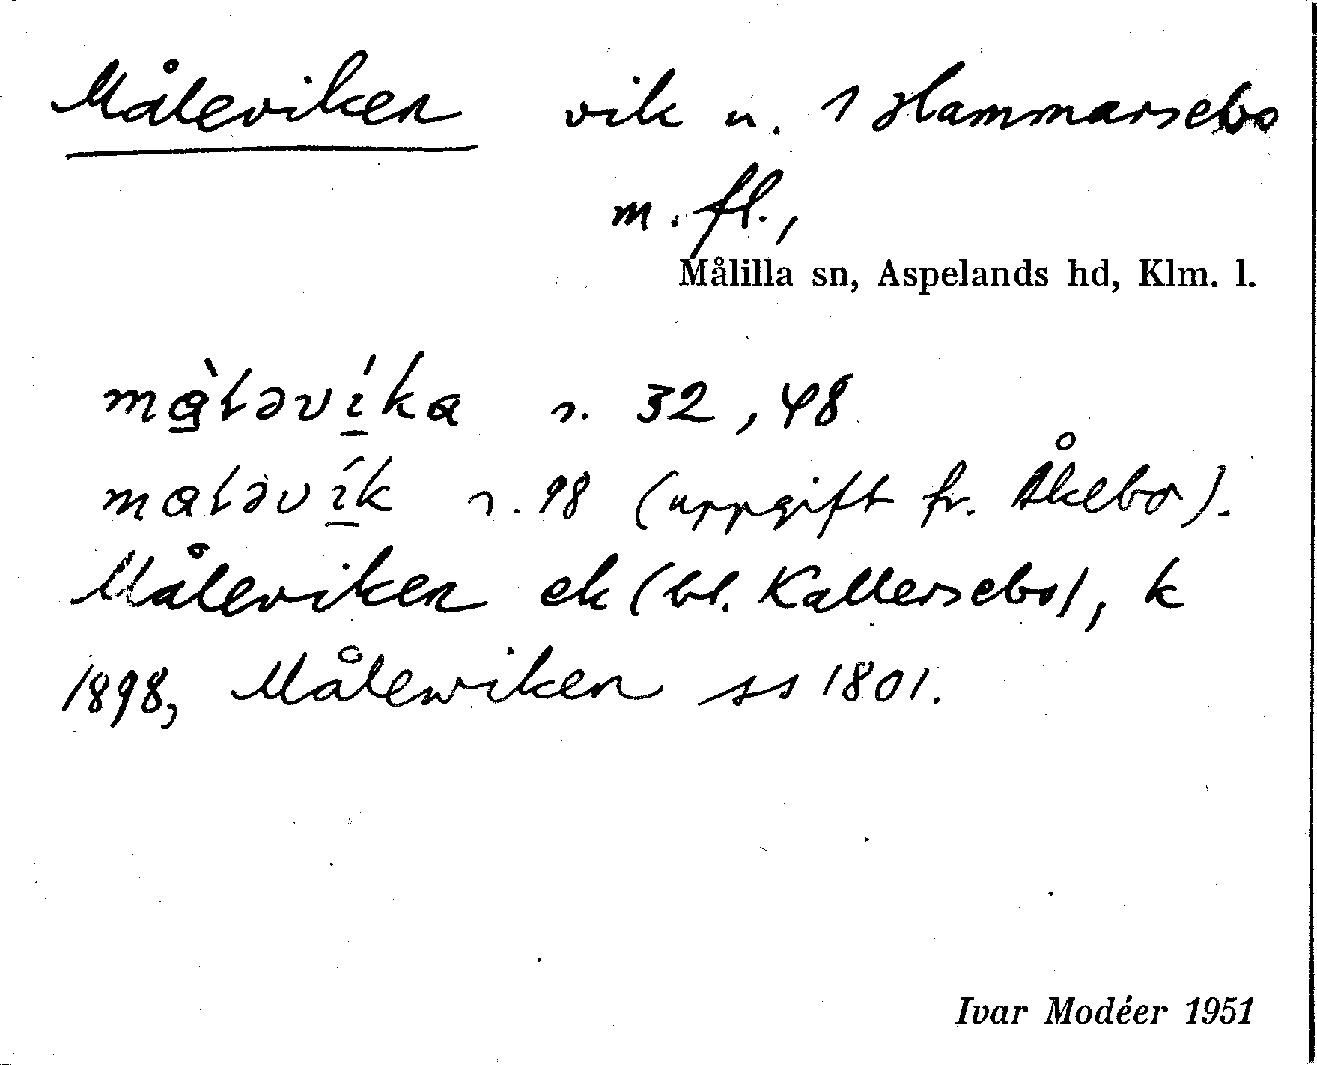 Måleviken vik u. 1 Hammarsebo
m. fl.,
Målilla sn, Aspelands hd, Klm. l.
mὰləvíka s. 32, 48
mαləvík s. 98 (uppgift fr. Åkebo).
Måleviken ek (bl. Kallersebo), k
1898, Målewiken ss 1801.
Ivar Modéer 1951